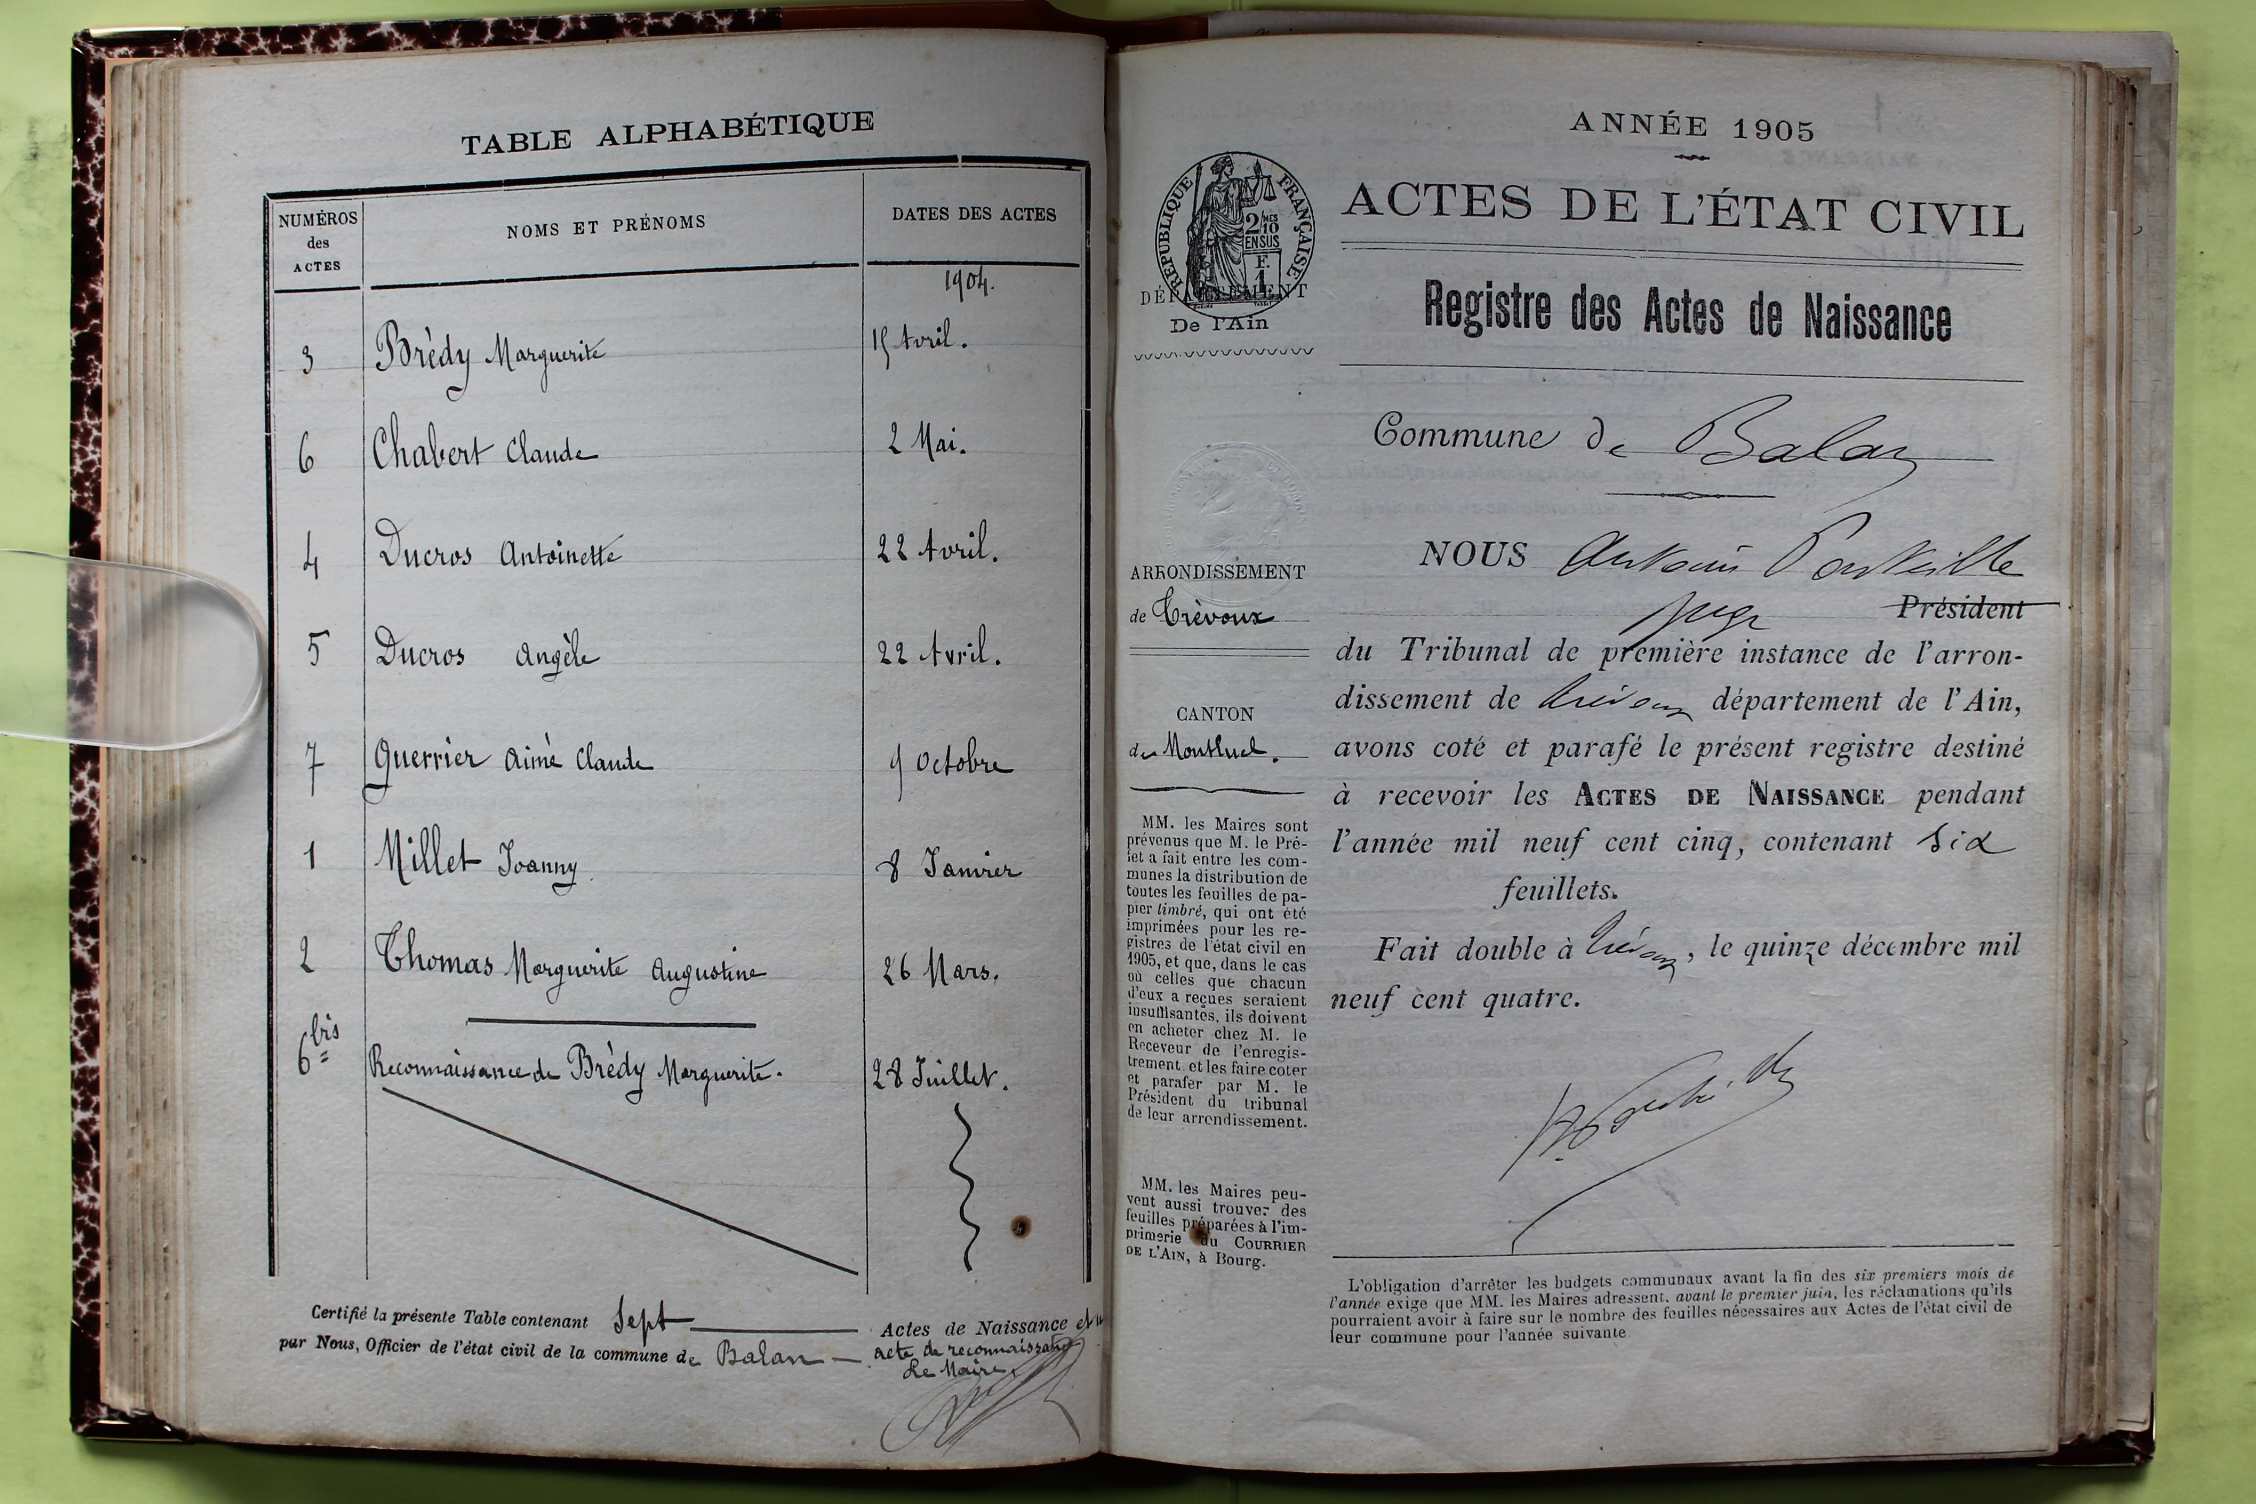 TABLE ALPHABÉTIQUE
NUMÉROS des ACTES
NOMS ET PRÉNOMS
DATES DES ACTES
1904.
3 Brédy Marguerite 15 Avril.
6 Chabert Claude 2 Mai.
4 Ducros Antoinette 22 Avril.
5 Ducros Angèle 22 Avril.
7 Guerrier Aimé Claude 9 Octobre
1 Millet Joanny 8 Janvier
2 Thomas Marguerite Augustine 26 Mars.
6 bis Reconnaissance de Brédy Marguerite. 28 Juillet.
Certifié la présente Table contenant Sept Actes de Naissance et u
par Nous, Officier de l'état civil de la commune de Balan acte de reconnaissance
Le Maire,
ANNÉE 1905
RÉPUBLIQUE FRANÇAISE
2/10 MES
EN SUS
F.
1
DÉPARTEMENT
De l'Ain
ARRONDISSEMENT
de Trévoux
CANTON
de Montluel.
MM. les Maires sont
prévenus que M. le Pré-
fet a fait entre les com-
munes la distribution de
toutes les feuilles de pa-
pier timbré, qui ont été
imprimées pour les re-
gistres de l'état civil en
1905, et que, dans le cas
où celles que chacun
d'eux a reçues seraient
insuffisantes, ils doivent
en acheter chez M. le
Receveur de l'enregis-
trement et les faire coter
et parafer par M. le
Président du tribunal
de leur arrondissement.
MM. les Maires peu-
vent aussi trouver des
feuilles préparées à l'im-
primerie du COURRIER
DE L'AIN, à Bourg.
ACTES DE L'ÉTAT CIVIL
Registre des Actes de Naissance
Commune de Balan
NOUS Antonin Ponteille
juge Président
du Tribunal de première instance de l'arron-
dissement de Trévoux département de l'Ain,
avons coté et parafé le présent registre destiné
à recevoir les ACTES DE NAISSANCE pendant
l'année mil neuf cent cinq, contenant six
feuillets.
Fait double à Trévoux, le quinze décembre mil
neuf cent quatre.
L'obligation d'arrêter les budgets communaux avant la fin des six premiers mois de
l'année exige que MM. les Maires adressent, avant le premier juin, les réclamations qu'ils
pourraient avoir à faire sur le nombre des feuilles nécessaires aux Actes de l'état civil de
leur commune pour l'année suivante